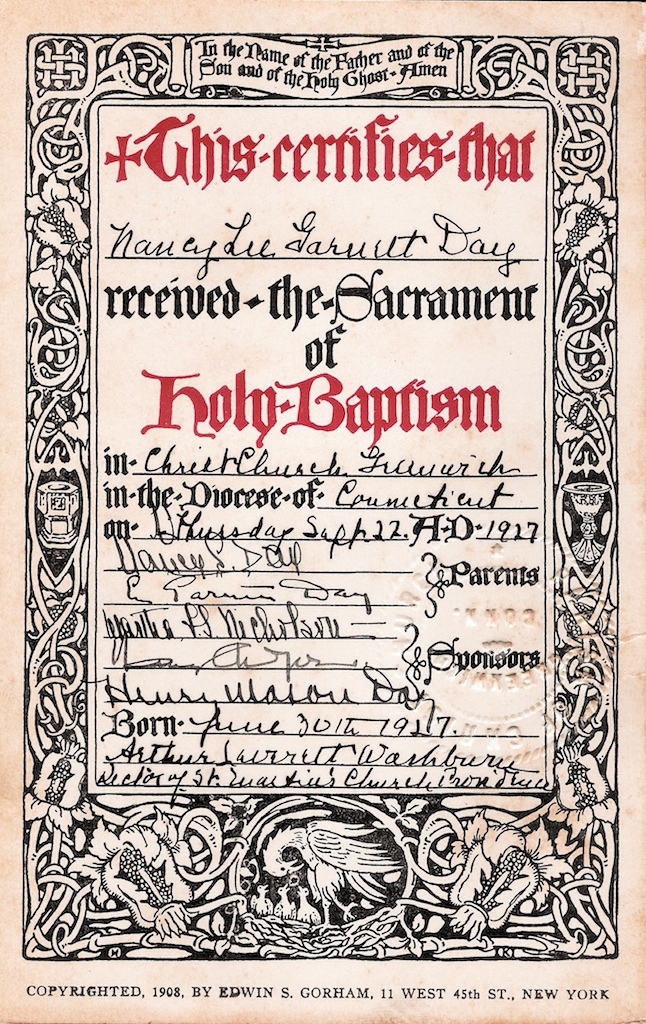 In the Name of the Father and of the
Son and of the Holy Ghost - Amen
This-certifies-that
Nancy Lee Garnett Day
received-the-Sacrament
of
Holy-Baptism
in-Christ Church Greenwich
in-the-Diocese-of-Connecticut
on-Thursday Sept 22. A-D-1927
Nancy L. Day
Day
Parents
Martha Nicholson
Sponsors
Henry Mason Day
Born-June 30th 1927.
Arthur Washburn
Rector of St. Martin's Church Providence
COPYRIGHTED, 1908, BY EDWIN S. GORHAM, 11 WEST 45th ST., NEW YORK